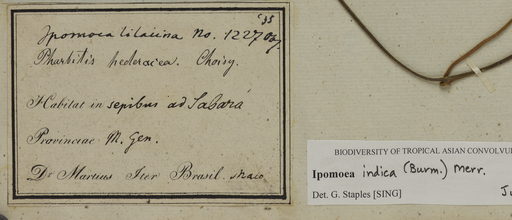 '35
Ipomoea lilacina No. 1227
Pharbitis hederacea. Choisy.
Habitat in sepibus ad Sabará
Provinciae M. Gen.
Dr Martius Iter Brasil.
BIODIVERSITY OF TROPICAL ASIAN CONVOLVU
Ipomoea indica (Burm.) Merr.
Det. G. Staples [SING]